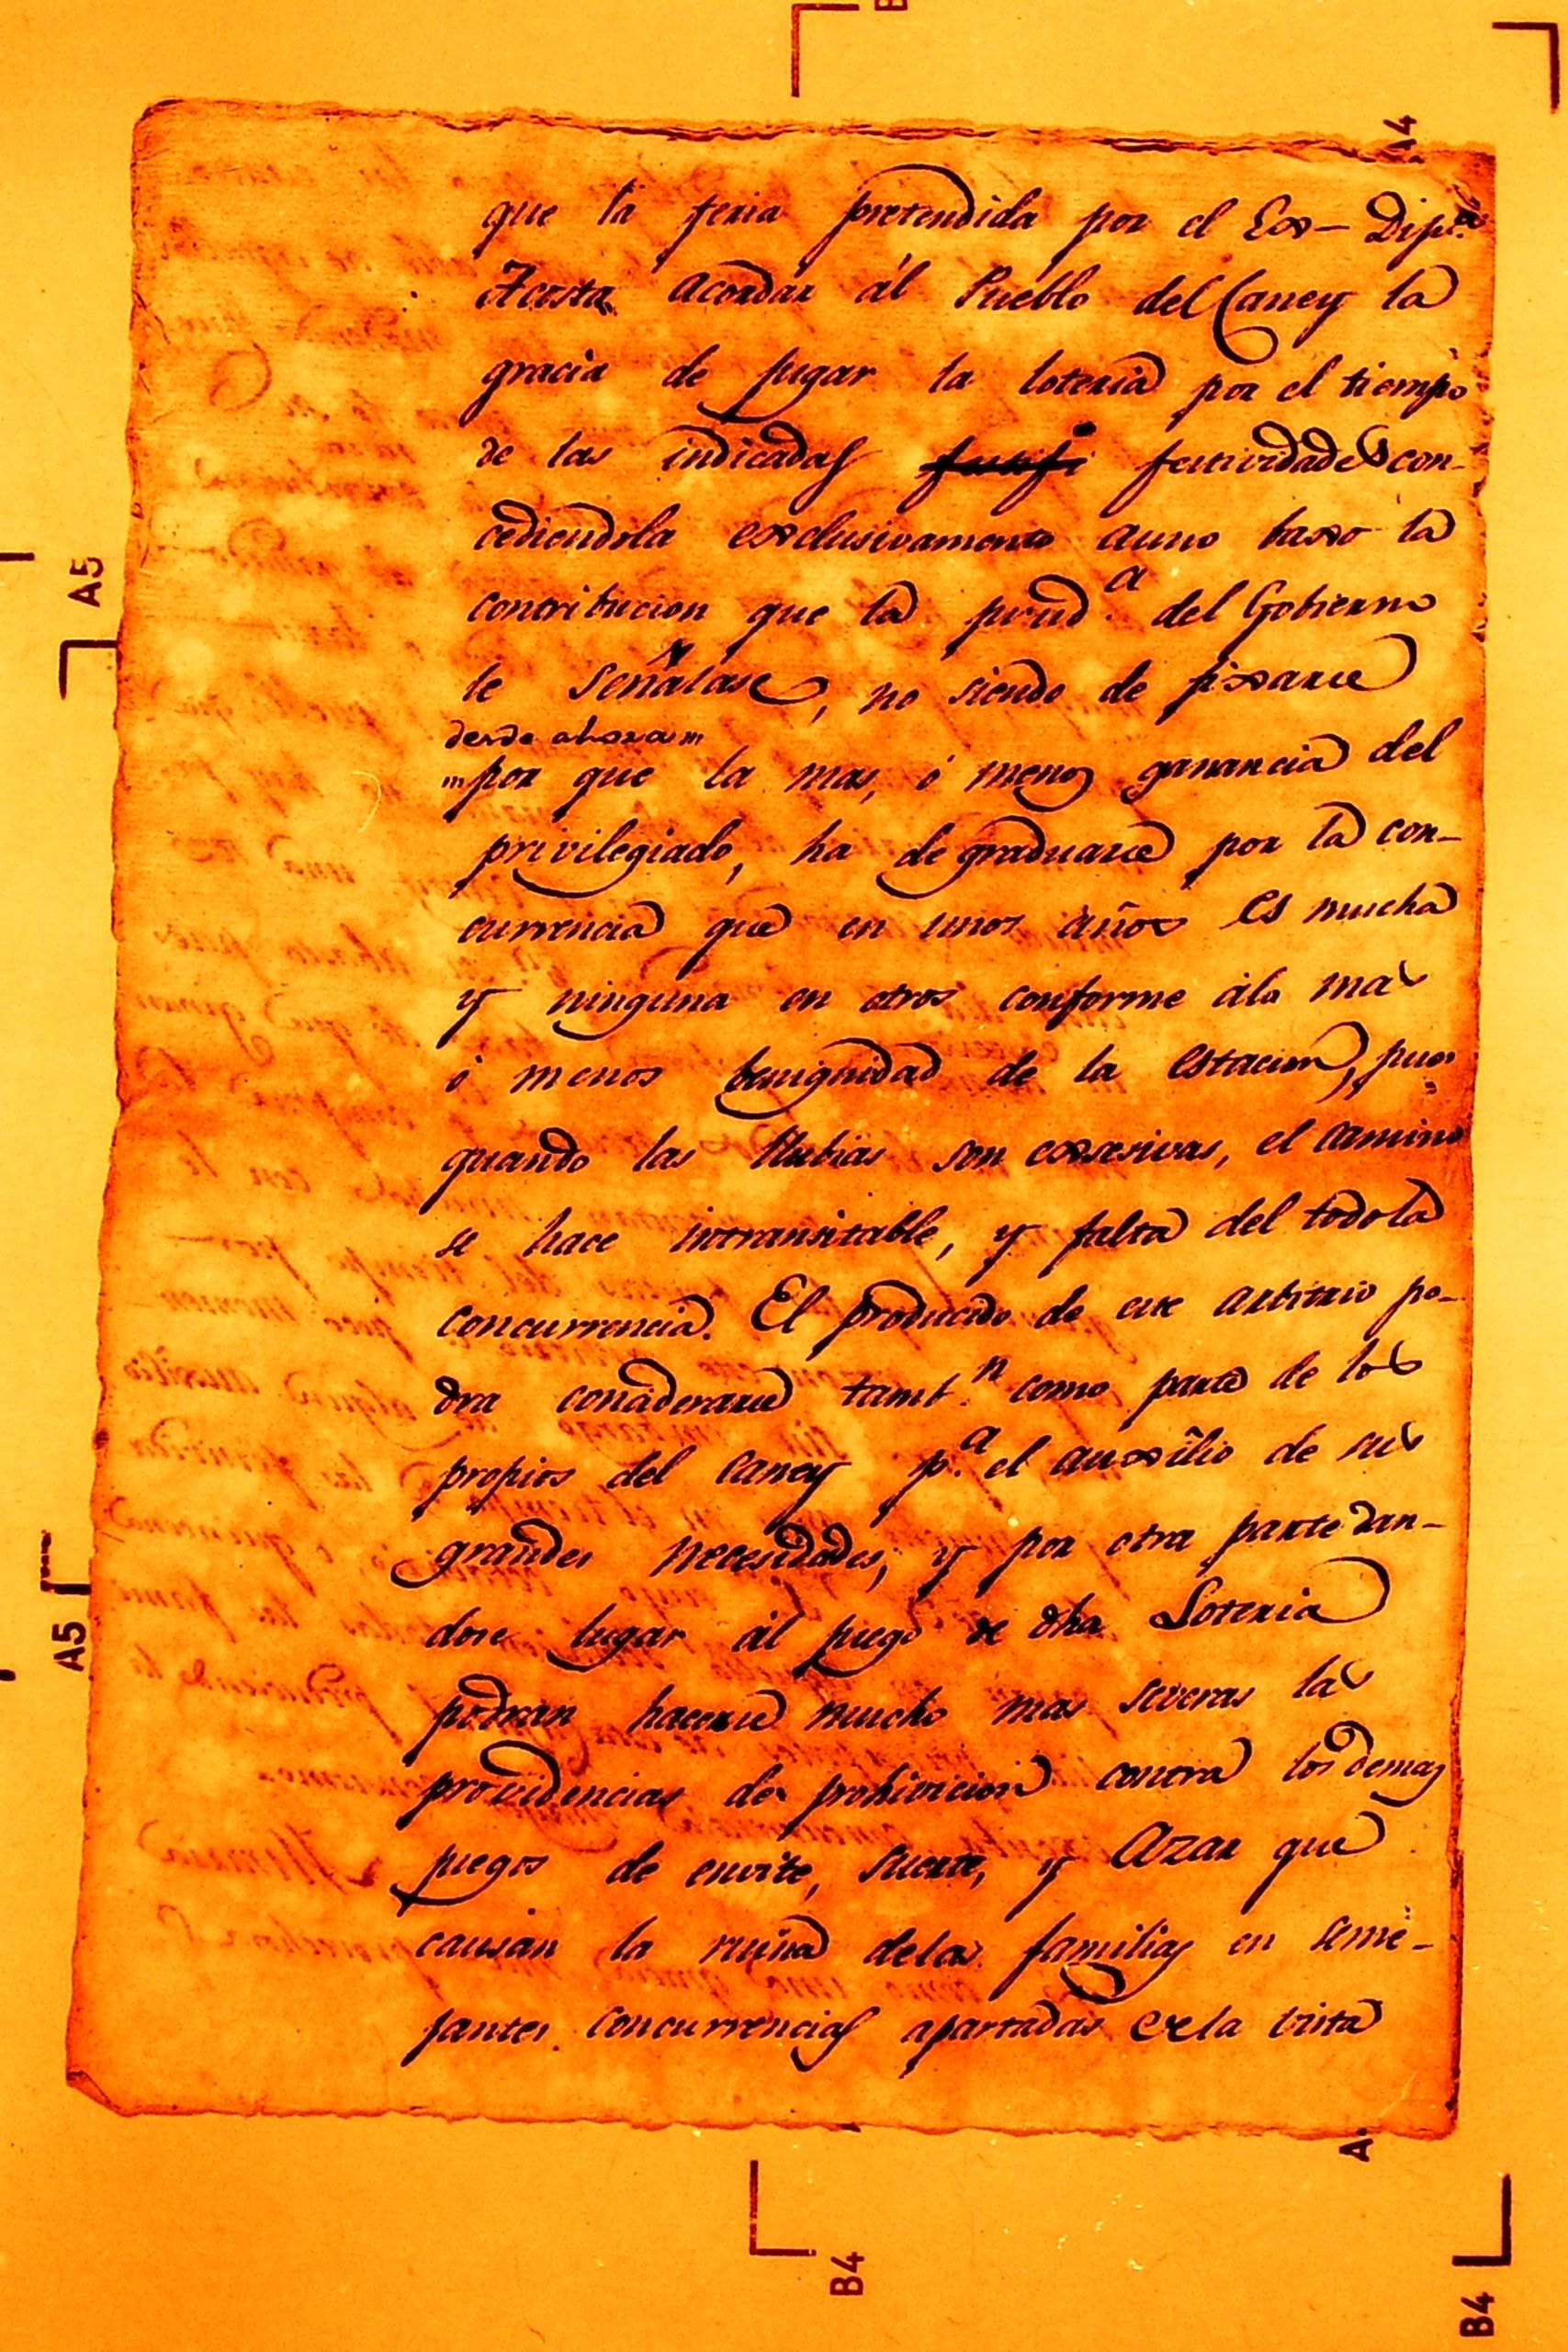 que la feria pretendida por el Ex- Dip.do
Acosta, acordar ál Pueblo del Caney la
gracia de jugar la loteria por el tiempo
de las indicadas festividades con-
cediendola exclusivamente auno baxo la
contribucion que la prud.a del Gobierno
le señalase, no siendo de fixarse
desde ahora
por que la mas, ó menos ganancia del
privilegiado, ha de graduarse por la con-
currencia que en unos años es mucha
y ninguna en otros conforme ála mas
ó menos benignidad de la estacion, pues
quando las llubias son exsesivas, el camino
se hace intransitable, y falta del todo la
concurrencia. El producido de este arbitrio po-
dra considerarse tamb.n como parte de los
propios del Caney p.a el auxilio de sus
grandes necesidades, y por otra parte dan-
dose lugar ál juego de dha Loteria
podran hacerse mucho mas severas las
providencias de prohivicion contra los demas
juegos de envite, suerte, y Azar que
causan la ruina delas familias en seme-
jantes concurrencias apartadas de la vista
A4
A5
A5
B4
B4